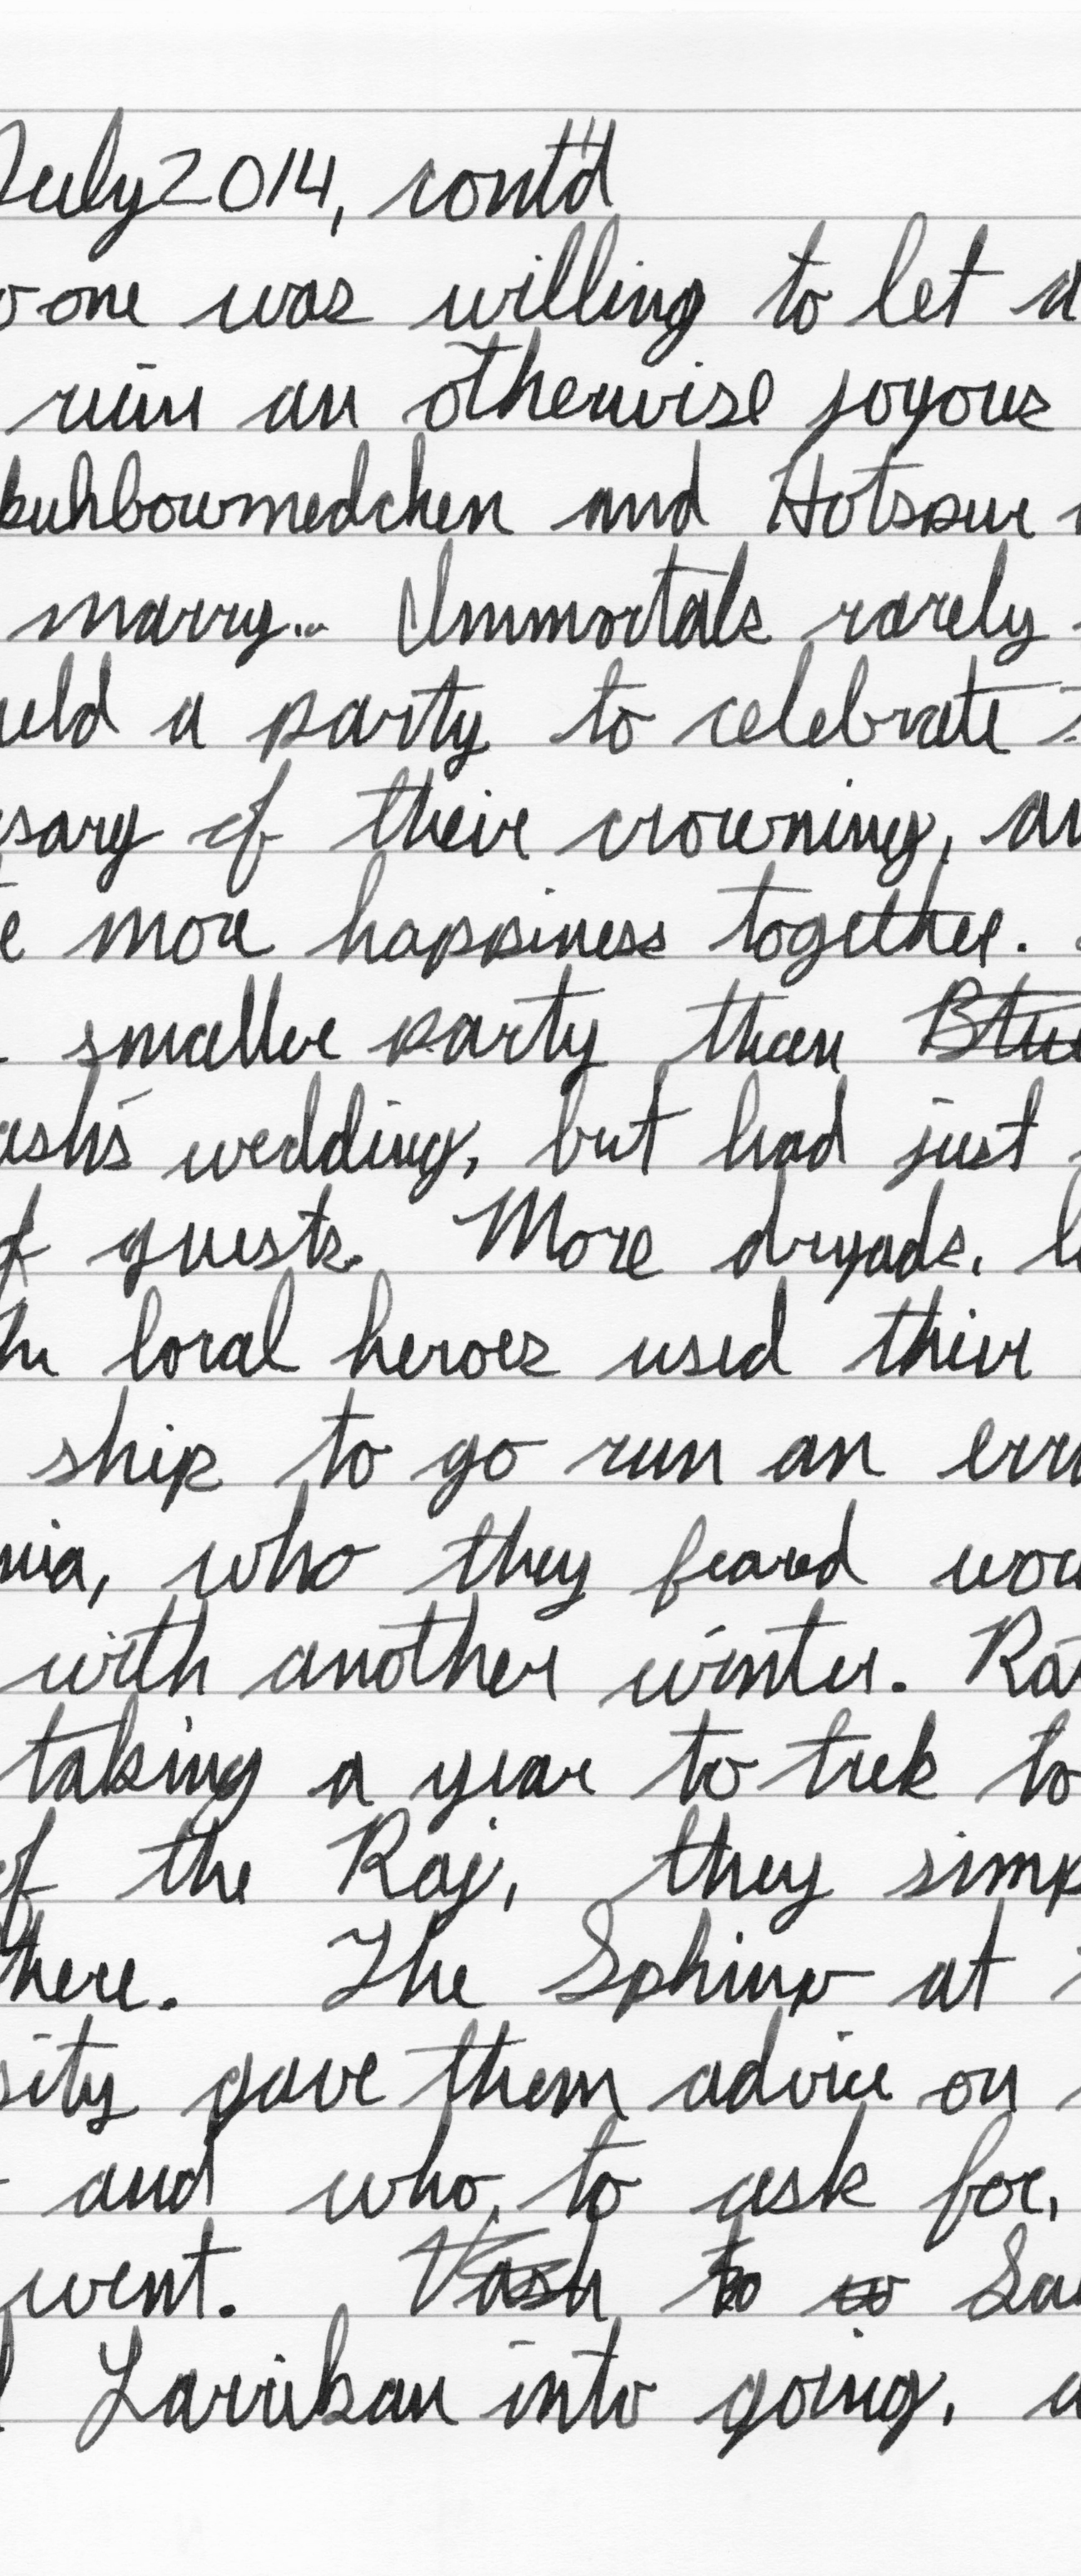 July 2014, cont'd
o-one was willing to let a
ruin an otherwise joyous
kuhbowmedchen and Hotspur
marry... Immortals rarely
eld a party to celebrate
sary of their crowning, an
e more happiness together.
smaller party than
ash's wedding, but had just
of guests. More dryads,
local heroes used their
ship to go run an erra
nia, who they feared wou
with another winter. Rat
taking a year to trek to
of the Raj, they simp
here. The Sphinx at
sity gave them advice on
and who to ask for,
went. Vash to to Sau
Larrikan into going, a